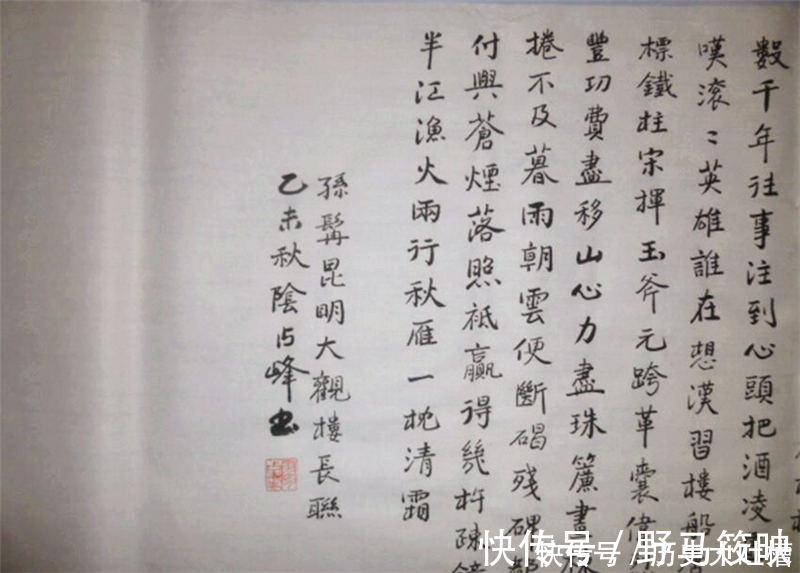 数千年往事注到心頭把酒凌
嘆滚〻英雄誰在想漢習樓船
標鐵柱宋揮玉斧元跨革囊偉
豐功費盡移山心力盡珠簾畫
捲不及暮雨朝雲便斷碣残碑
付與蒼煙落照祗贏得幾杵疎
半江漁火兩行秋雁一枕清霜
孫髯昆明大觀樓長聯
乙未秋陰占峰书
快传号 / 野马笳映
快传号